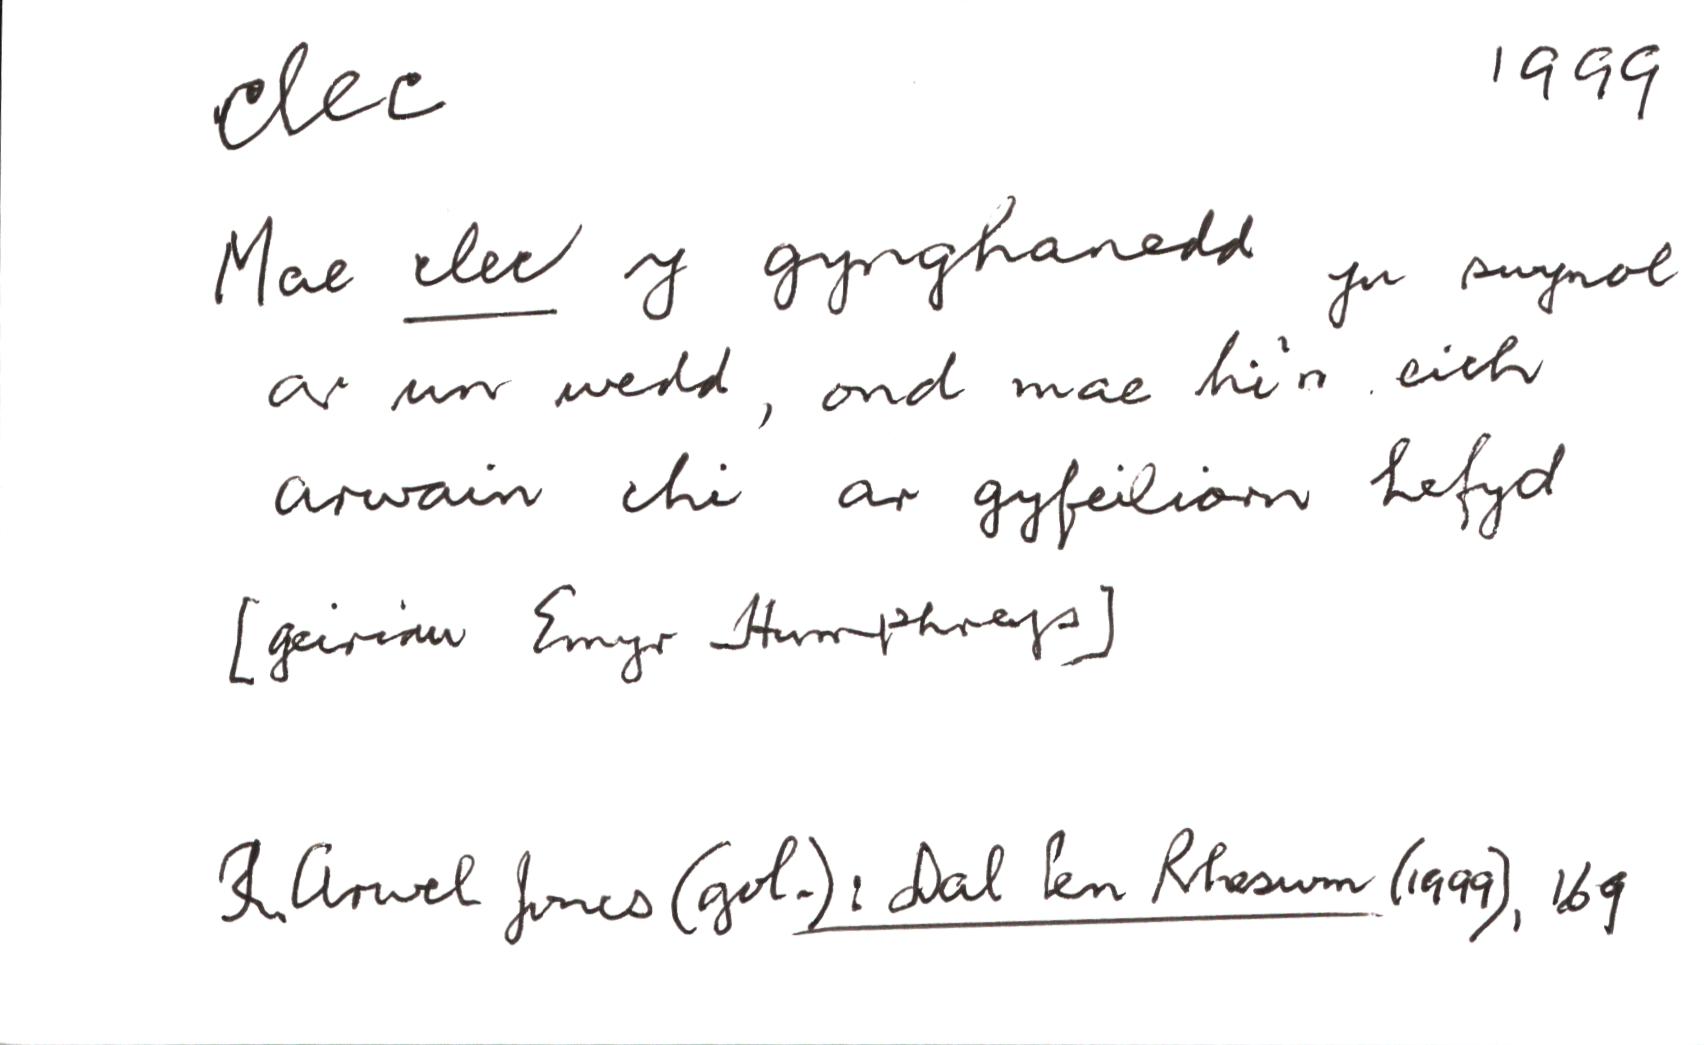 clec 1999
Mae clec y gynghanedd yn swynol
ar un wedd, ond mae hi'n eich
arwain chi ar gyfeiliorn hefyd
[geiriau Emyr Humphreys]
R. Arwel Jones (gol.): Dal Pen Rheswm (1999), 169